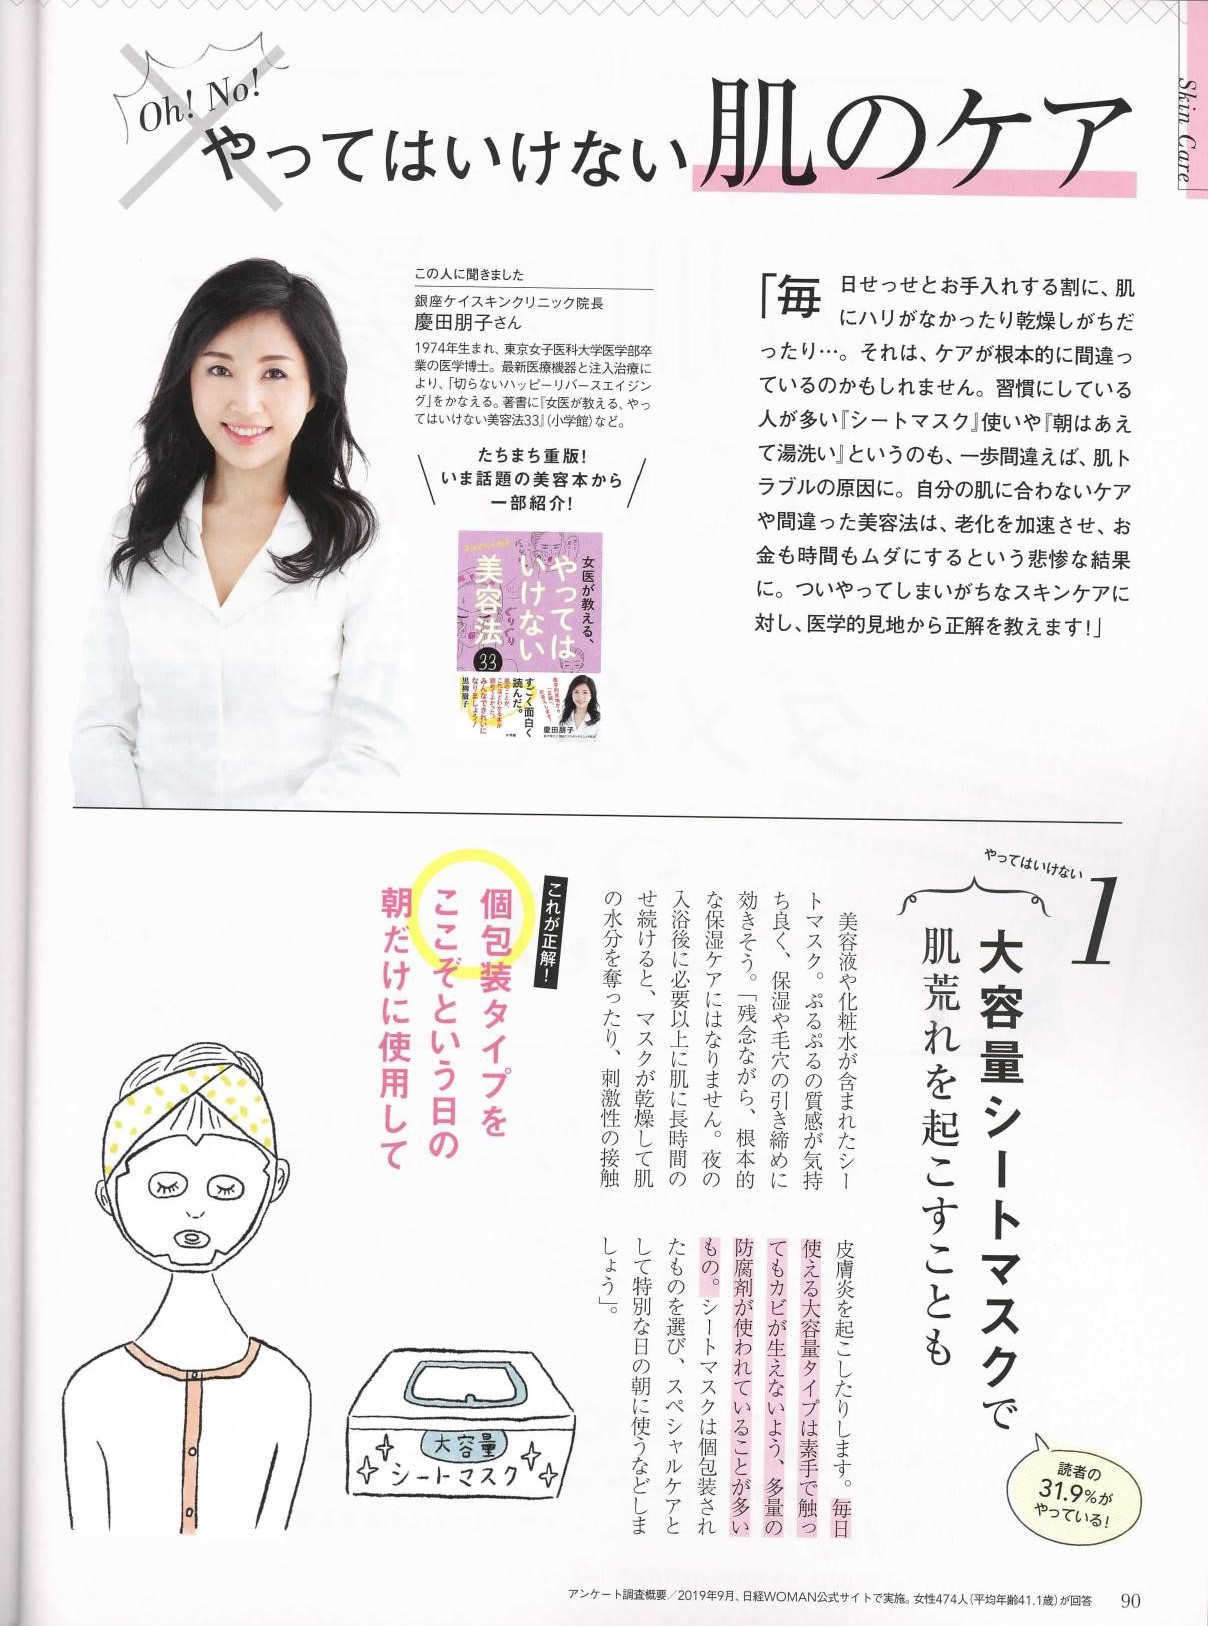 Skin Care
Oh! No!
やってはいけない肌のケア
この人に聞きました
銀座ケイスキンクリニック院長
慶田朋子さん
1974年生まれ、東京女子医科大学医学部卒
業の医学博士。最新医療機器と注入治療に
より、「切らないハッピーリバースエイジン
グ」をかなえる。著書に『女医が教える、やっ
てはいけない美容法33』(小学館)など。
たちまち重版!
いま話題の美容本から
一部紹介!
女医が教える、
やっては
いけない
美容法
33
すごく面白く
読んだ。
肌のことが、
これほどわかる本が
読めてよかった。
みんなできれいに
なりましょう!
黒柳徹子
慶田朋子
小学館
「毎日せっせとお手入れする割に、肌
にハリがなかったり乾燥しがちだ
ったり…。それは、ケアが根本的に間違っ
ているのかもしれません。習慣にしている
人が多い『シートマスク』使いや『朝はあえ
て湯洗い』というのも、一歩間違えば、肌ト
ラブルの原因に。自分の肌に合わないケア
や間違った美容法は、老化を加速させ、お
金も時間もムダにするという悲惨な結果
に。ついやってしまいがちなスキンケアに
対し、医学的見地から正解を教えます!」
やってはいけない
1
大容量シートマスクで
肌荒れを起こすことも
読者の
31.9%が
やっている!
美容液や化粧水が含まれたシー
トマスク。ぷるぷるの質感が気持
ち良く、保湿や毛穴の引き締めに
効きそう。「残念ながら、根本的
な保湿ケアにはなりません。夜の
入浴後に必要以上に肌に長時間の
せ続けると、マスクが乾燥して肌
の水分を奪ったり、刺激性の接触
皮膚炎を起こしたりします。毎日
使える大容量タイプは素手で触っ
てもカビが生えないよう、多量の
防腐剤が使われていることが多い
もの。シートマスクは個包装され
たものを選び、スペシャルケアと
して特別な日の朝に使うなどしま
しょう」。
これが正解!
個包装タイプを
ここぞという日の
朝だけに使用して
大容量
シートマスク
アンケート調査概要／2019年9月、日経WOMAN公式サイトで実施。女性474人(平均年齢41.1歳)が回答
90